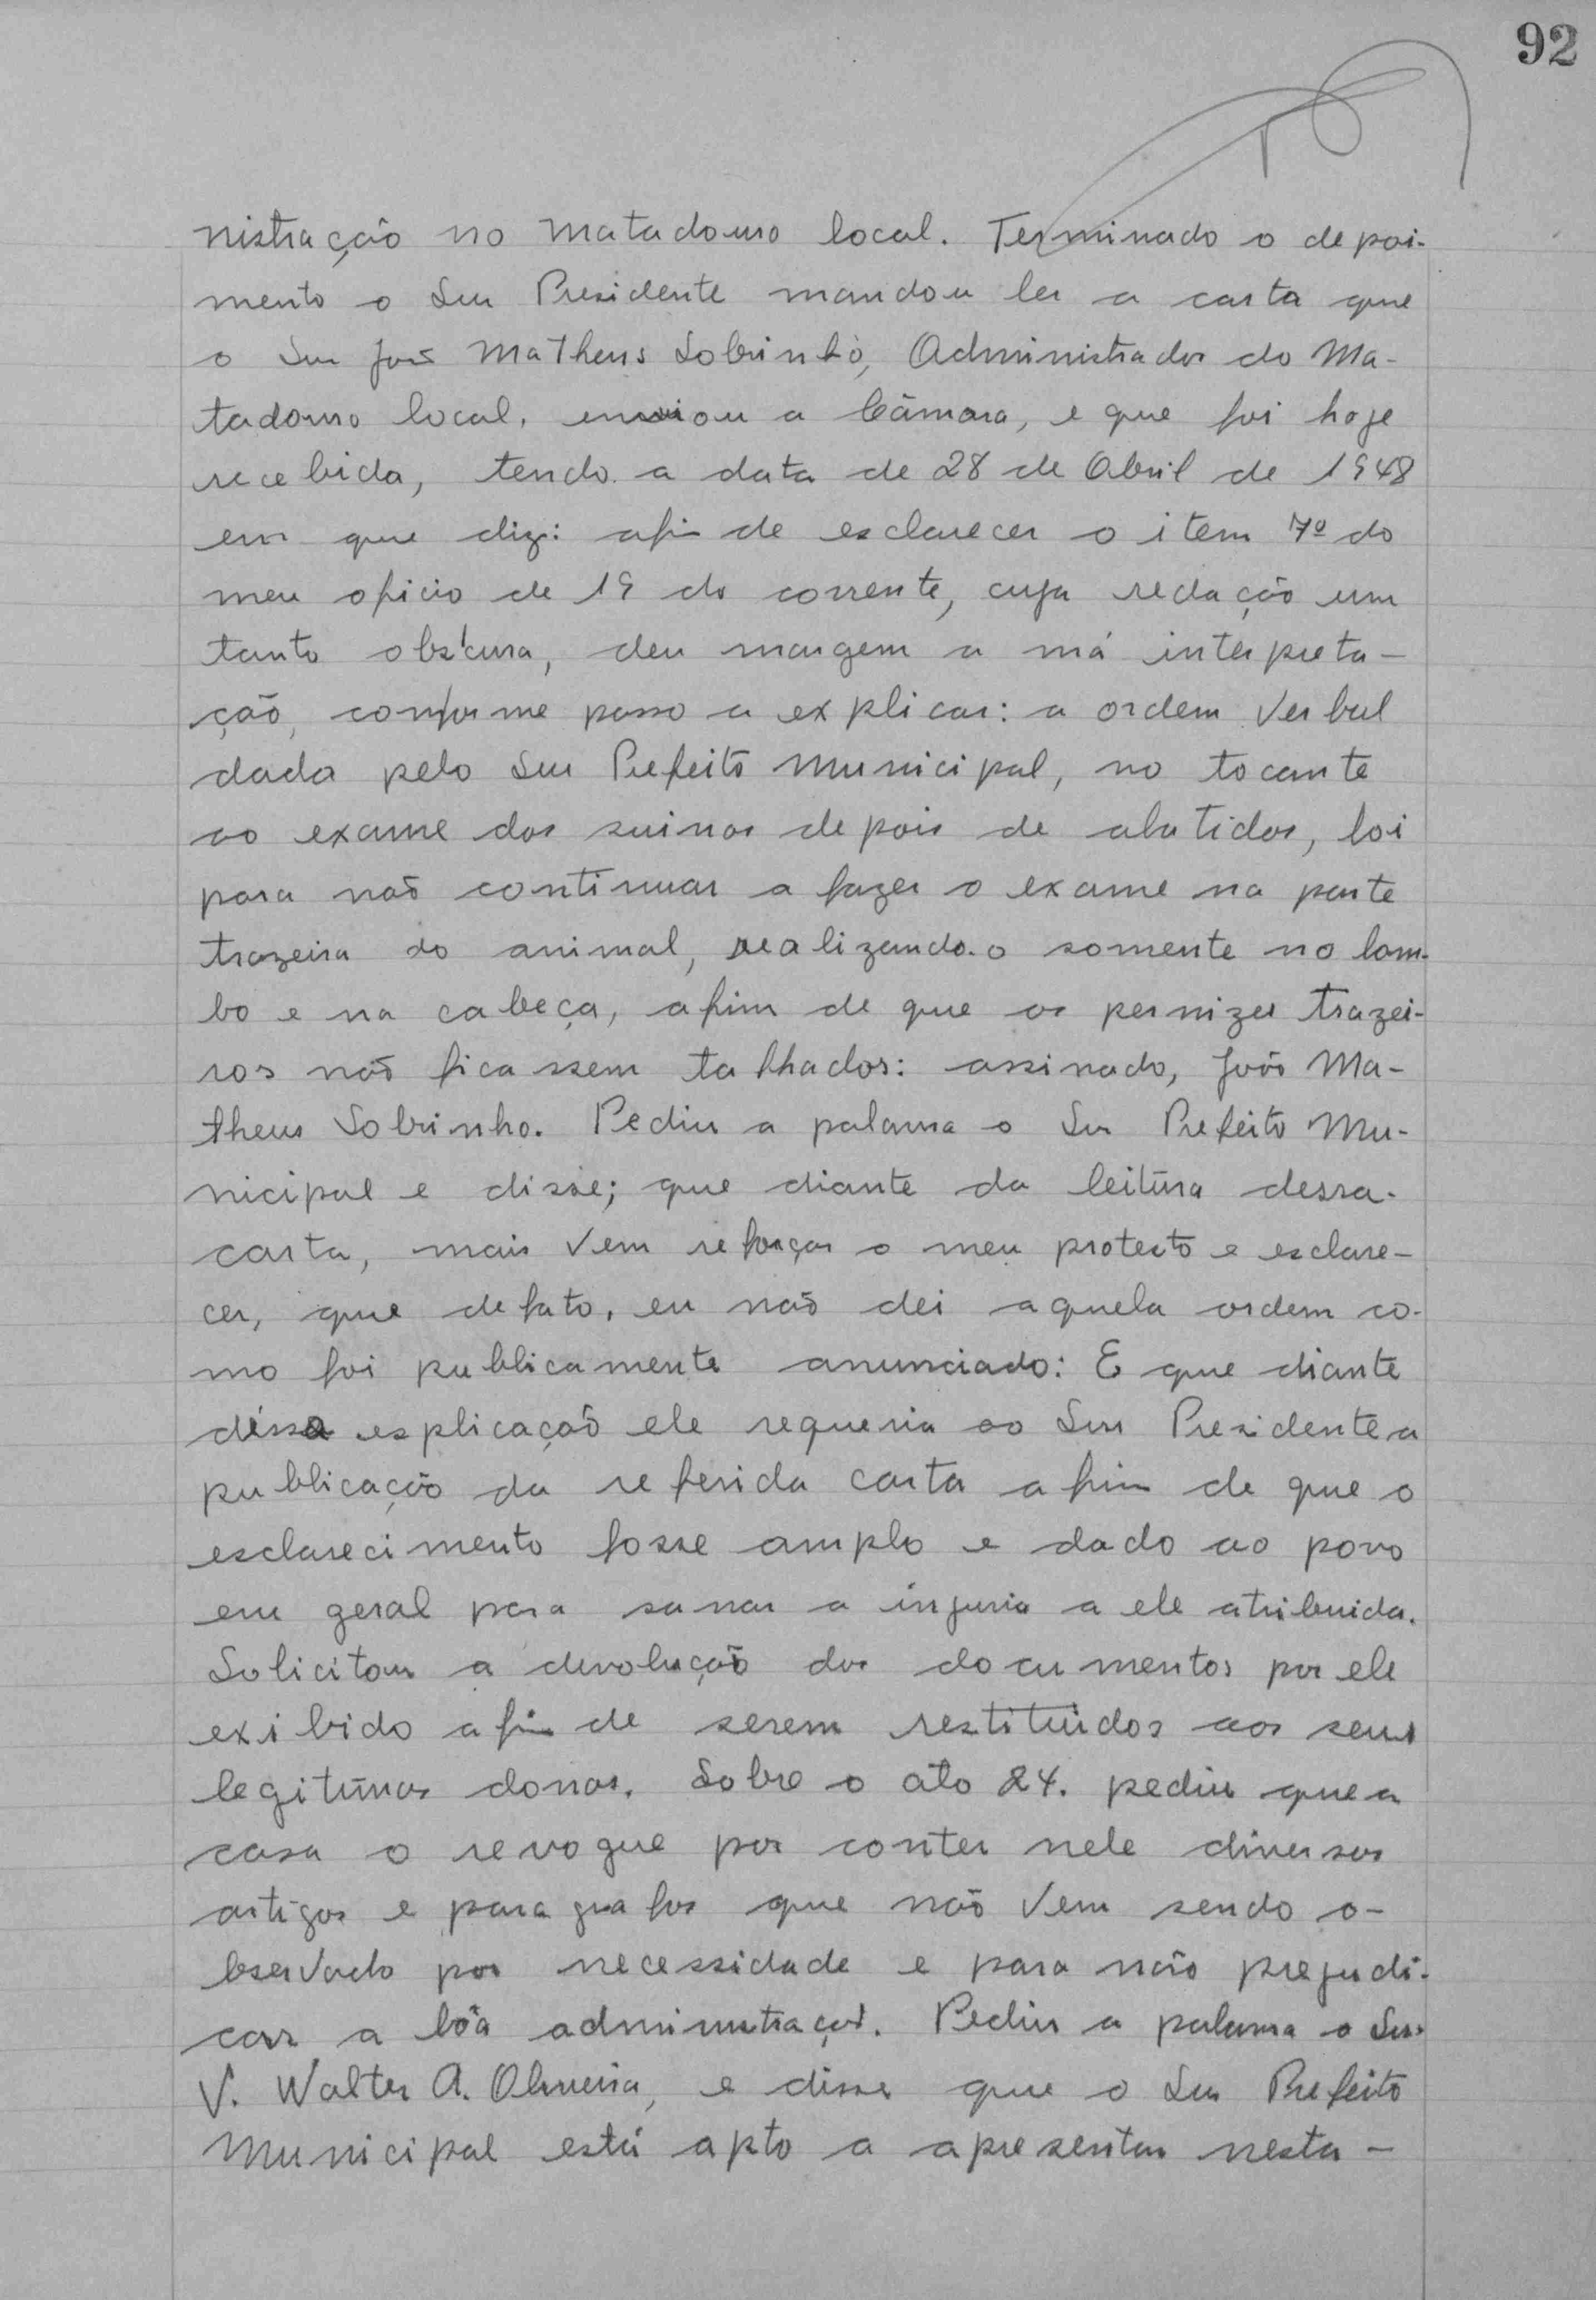 92
nistração no Matadouro local. Terminado o depoi-
mento o Snr Presidente mandou ler a carta que
o Snr João Matheus Sobrinho, Administrador do Ma-
tadouro local, enviou a Câmara, e que foi hoje
recebida, tendo a data de 28 de Abril de 1948
em que diz: afim de esclarecer o item 7º do
meu oficio de 19 do corrente, cuja redação um
tanto obscura, deu margem a má interpreta-
ção, conforme passo a explicar: a ordem verbal
dada pelo Snr Prefeito Municipal, no tocante
ao exame dos suinos depois de abatidos, foi
para não continuar a fazer o exame na parte
trazeira do animal, realizando-o somente no lom-
bo e na cabeça, afim de que os pernizes trazei-
ros não ficassem talhados: assinado, João Ma-
theus Sobrinho. Pediu a palavra o Snr Prefeito Mu-
nicipal e disse; que diante da leitura dessa
carta, mais vem reforçar o meu protesto e esclare-
cer, que de fato, eu não dei aquela ordem co-
mo foi publicamente anunciado: E que diante
dessa esplicação ele requeria ao Snr Presidente a
publicação da referida carta afim de que o
esclarecimento fosse amplo e dado ao povo
em geral para sanar a injuria a ele atribuida.
Solicitou a devolução dos documentos por ele
exibido afim de serem restituidos aos seus
legitimos donos. Sobre o ato 24. pediu que a
casa o revogue por conter nele diversos
artigos e paragrafos que não vem sendo o-
bservado por necessidade e para não prejudi-
car a bôa administração. Pediu a palavra o Snr.
V. Walter A. Oliveira, e disse que o Snr Prefeito
Municipal está apto a apresentar nesta-